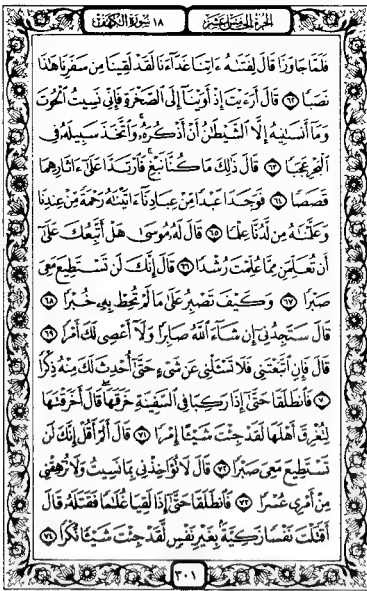 الجزء الخامس عشر
١٨ سورة الكهف
فَلَمَّا جَاوَزَا قَالَ لِفَتَىٰهُ ءَاتِنَا غَدَآءَنَا لَقَدْ لَقِينَا مِن سَفَرِنَا هَٰذَا
نَصَبًا ٦٢ قَالَ أَرَءَيْتَ إِذْ أَوَيْنَآ إِلَى ٱلصَّخْرَةِ فَإِنِّي نَسِيتُ ٱلْحُوتَ
وَمَآ أَنسَىٰنِيهُ إِلَّا ٱلشَّيْطَٰنُ أَنْ أَذْكُرَهُۥ وَٱتَّخَذَ سَبِيلَهُۥ فِي
ٱلْبَحْرِ عَجَبًا ٦٣ قَالَ ذَٰلِكَ مَا كُنَّا نَبْغِ ۚ فَٱرْتَدَّا عَلَىٰٓ ءَاثَارِهِمَا
قَصَصًا ٦٤ فَوَجَدَا عَبْدًا مِّنْ عِبَادِنَآ ءَاتَيْنَٰهُ رَحْمَةً مِّنْ عِندِنَا
وَعَلَّمْنَٰهُ مِن لَّدُنَّا عِلْمًا ٦٥ قَالَ لَهُۥ مُوسَىٰ هَلْ أَتَّبِعُكَ عَلَىٰٓ
أَن تُعَلِّمَنِ مِمَّا عُلِّمْتَ رُشْدًا ٦٦ قَالَ إِنَّكَ لَن تَسْتَطِيعَ مَعِيَ
صَبْرًا ٦٧ وَكَيْفَ تَصْبِرُ عَلَىٰ مَا لَمْ تُحِطْ بِهِۦ خُبْرًا ٦٨
قَالَ سَتَجِدُنِيٓ إِن شَآءَ ٱللَّهُ صَابِرًا وَلَآ أَعْصِي لَكَ أَمْرًا ٦٩
قَالَ فَإِنِ ٱتَّبَعْتَنِي فَلَا تَسْـَٔلْنِي عَن شَيْءٍ حَتَّىٰٓ أُحْدِثَ لَكَ مِنْهُ ذِكْرًا
٧٠ فَٱنطَلَقَا حَتَّىٰٓ إِذَا رَكِبَا فِي ٱلسَّفِينَةِ خَرَقَهَا ۖ قَالَ أَخَرَقْتَهَا
لِتُغْرِقَ أَهْلَهَا لَقَدْ جِئْتَ شَيْـًٔا إِمْرًا ٧١ قَالَ أَلَمْ أَقُلْ إِنَّكَ لَن
تَسْتَطِيعَ مَعِيَ صَبْرًا ٧٢ قَالَ لَا تُؤَاخِذْنِي بِمَا نَسِيتُ وَلَا تُرْهِقْنِي
مِنْ أَمْرِي عُسْرًا ٧٣ فَٱنطَلَقَا حَتَّىٰٓ إِذَا لَقِيَا غُلَٰمًا فَقَتَلَهُۥ قَالَ
أَقَتَلْتَ نَفْسًا زَكِيَّةً بِغَيْرِ نَفْسٍ لَّقَدْ جِئْتَ شَيْـًٔا نُّكْرًا ٧٤
٣٠١